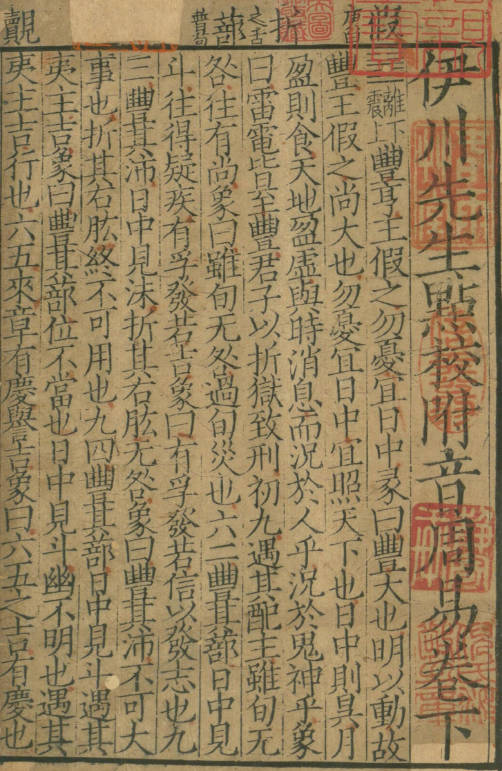 假庚白
折之舌
蔀普苟
覿
伊川先生點校附音周易卷下
䷶離下震上豐亨王假之勿憂宜日中彖曰豐大也明以動故
豐王假之尚大也勿憂宜日中宜照天下也日中則昃月
盈則食天地盈虛與時消息而況於人乎況於鬼神乎象
曰雷電皆至豐君子以折獄致刑初九遇其配主雖旬无
咎往有尚象曰雖旬无咎過旬災也六二豐其蔀日中見
斗往得疑疾有孚發若吉象曰有孚發若信以發志也九
三豐其沛日中見沬折其右肱无咎象曰豐其沛不可大
事也折其右肱終不可用也九四豐其蔀日中見斗遇其
夷主吉象曰豐其蔀位不當也日中見斗幽不明也遇其
夷主吉行也六五來章有慶譽吉象曰六五之吉有慶也